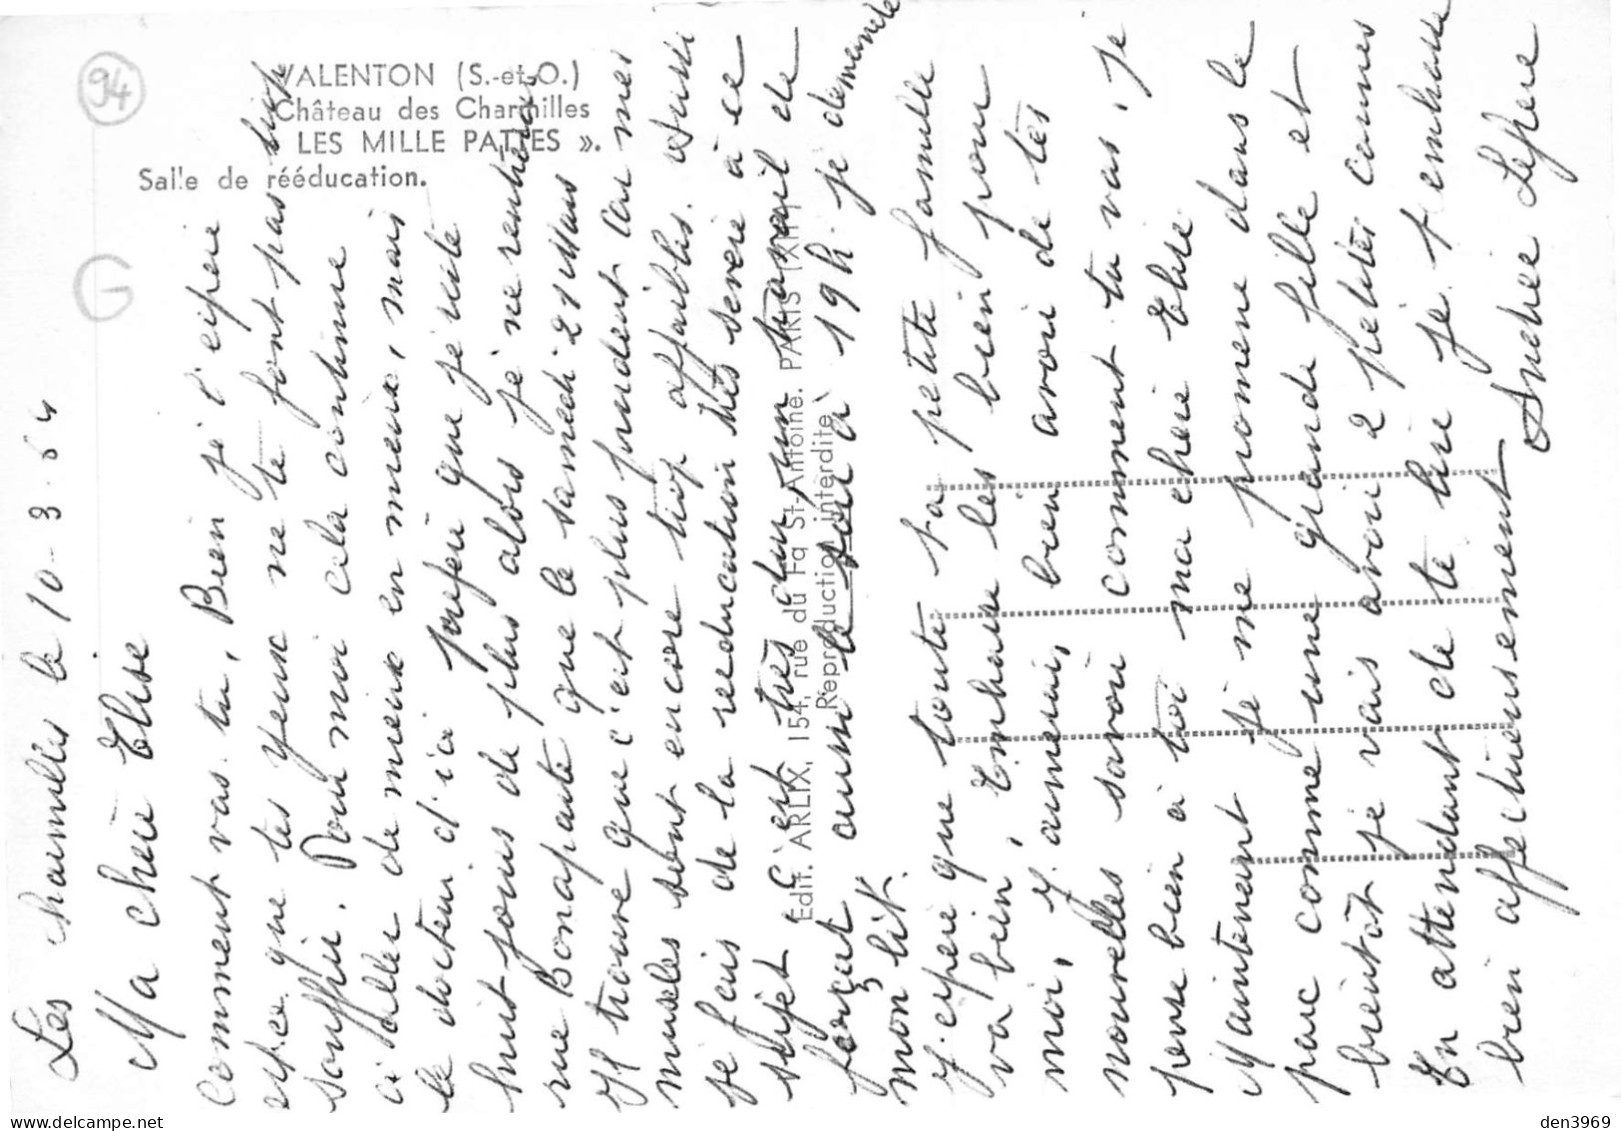 94
VALENTON (S.-et-O.)
Château des Charmilles
LES MILLE PATTES ».
Salle de rééducation.
G
Les charmilles le 10-3-64
Ma chère Elise
Comment vas-tu, Bien je l'espere
est-ce que tes yeux ne te font pas trop
souffrir. Pour moi cela continue
a aller de mieux en mieux, mais
le docteur d'ici prefere que je reste
huit jours de plus alors je ne rentrerai
rue Bonaparte que le samedi 21 Mars
Il trouve que c'est plus prudent car mes
muscles sont encore trop affaiblis. Aussi
je fais de la reeducation très severe à ce
sujet c'est très dur un travail de
forçat aussi le soir à 19h. je demande
mon lit.
J'espere que toute ta petite famille
va bien, Embrasse les bien pour
moi, J'aimerai bien avoir de tes
nouvelles savoir comment tu vas. Je
pense bien à toi ma chere Elise
Maintenant je me promene dans le
parc comme une grande fille et
bientôt je vais avoir 2 petites cannes
En attendant de te lire je t'embrasse
bien affectueusement
Andrée Lefevre
Edit. ARLIX, 154, rue du Fg St-Antoine. PARIS (XII
Reproduction interdite
den3969